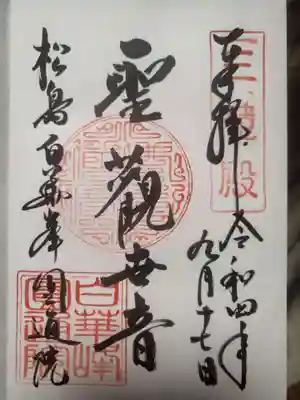 奉拝
令和四年
九月十七日
三慧殿
聖観世音
松島白華峰圓通院
白華峰
圓通院